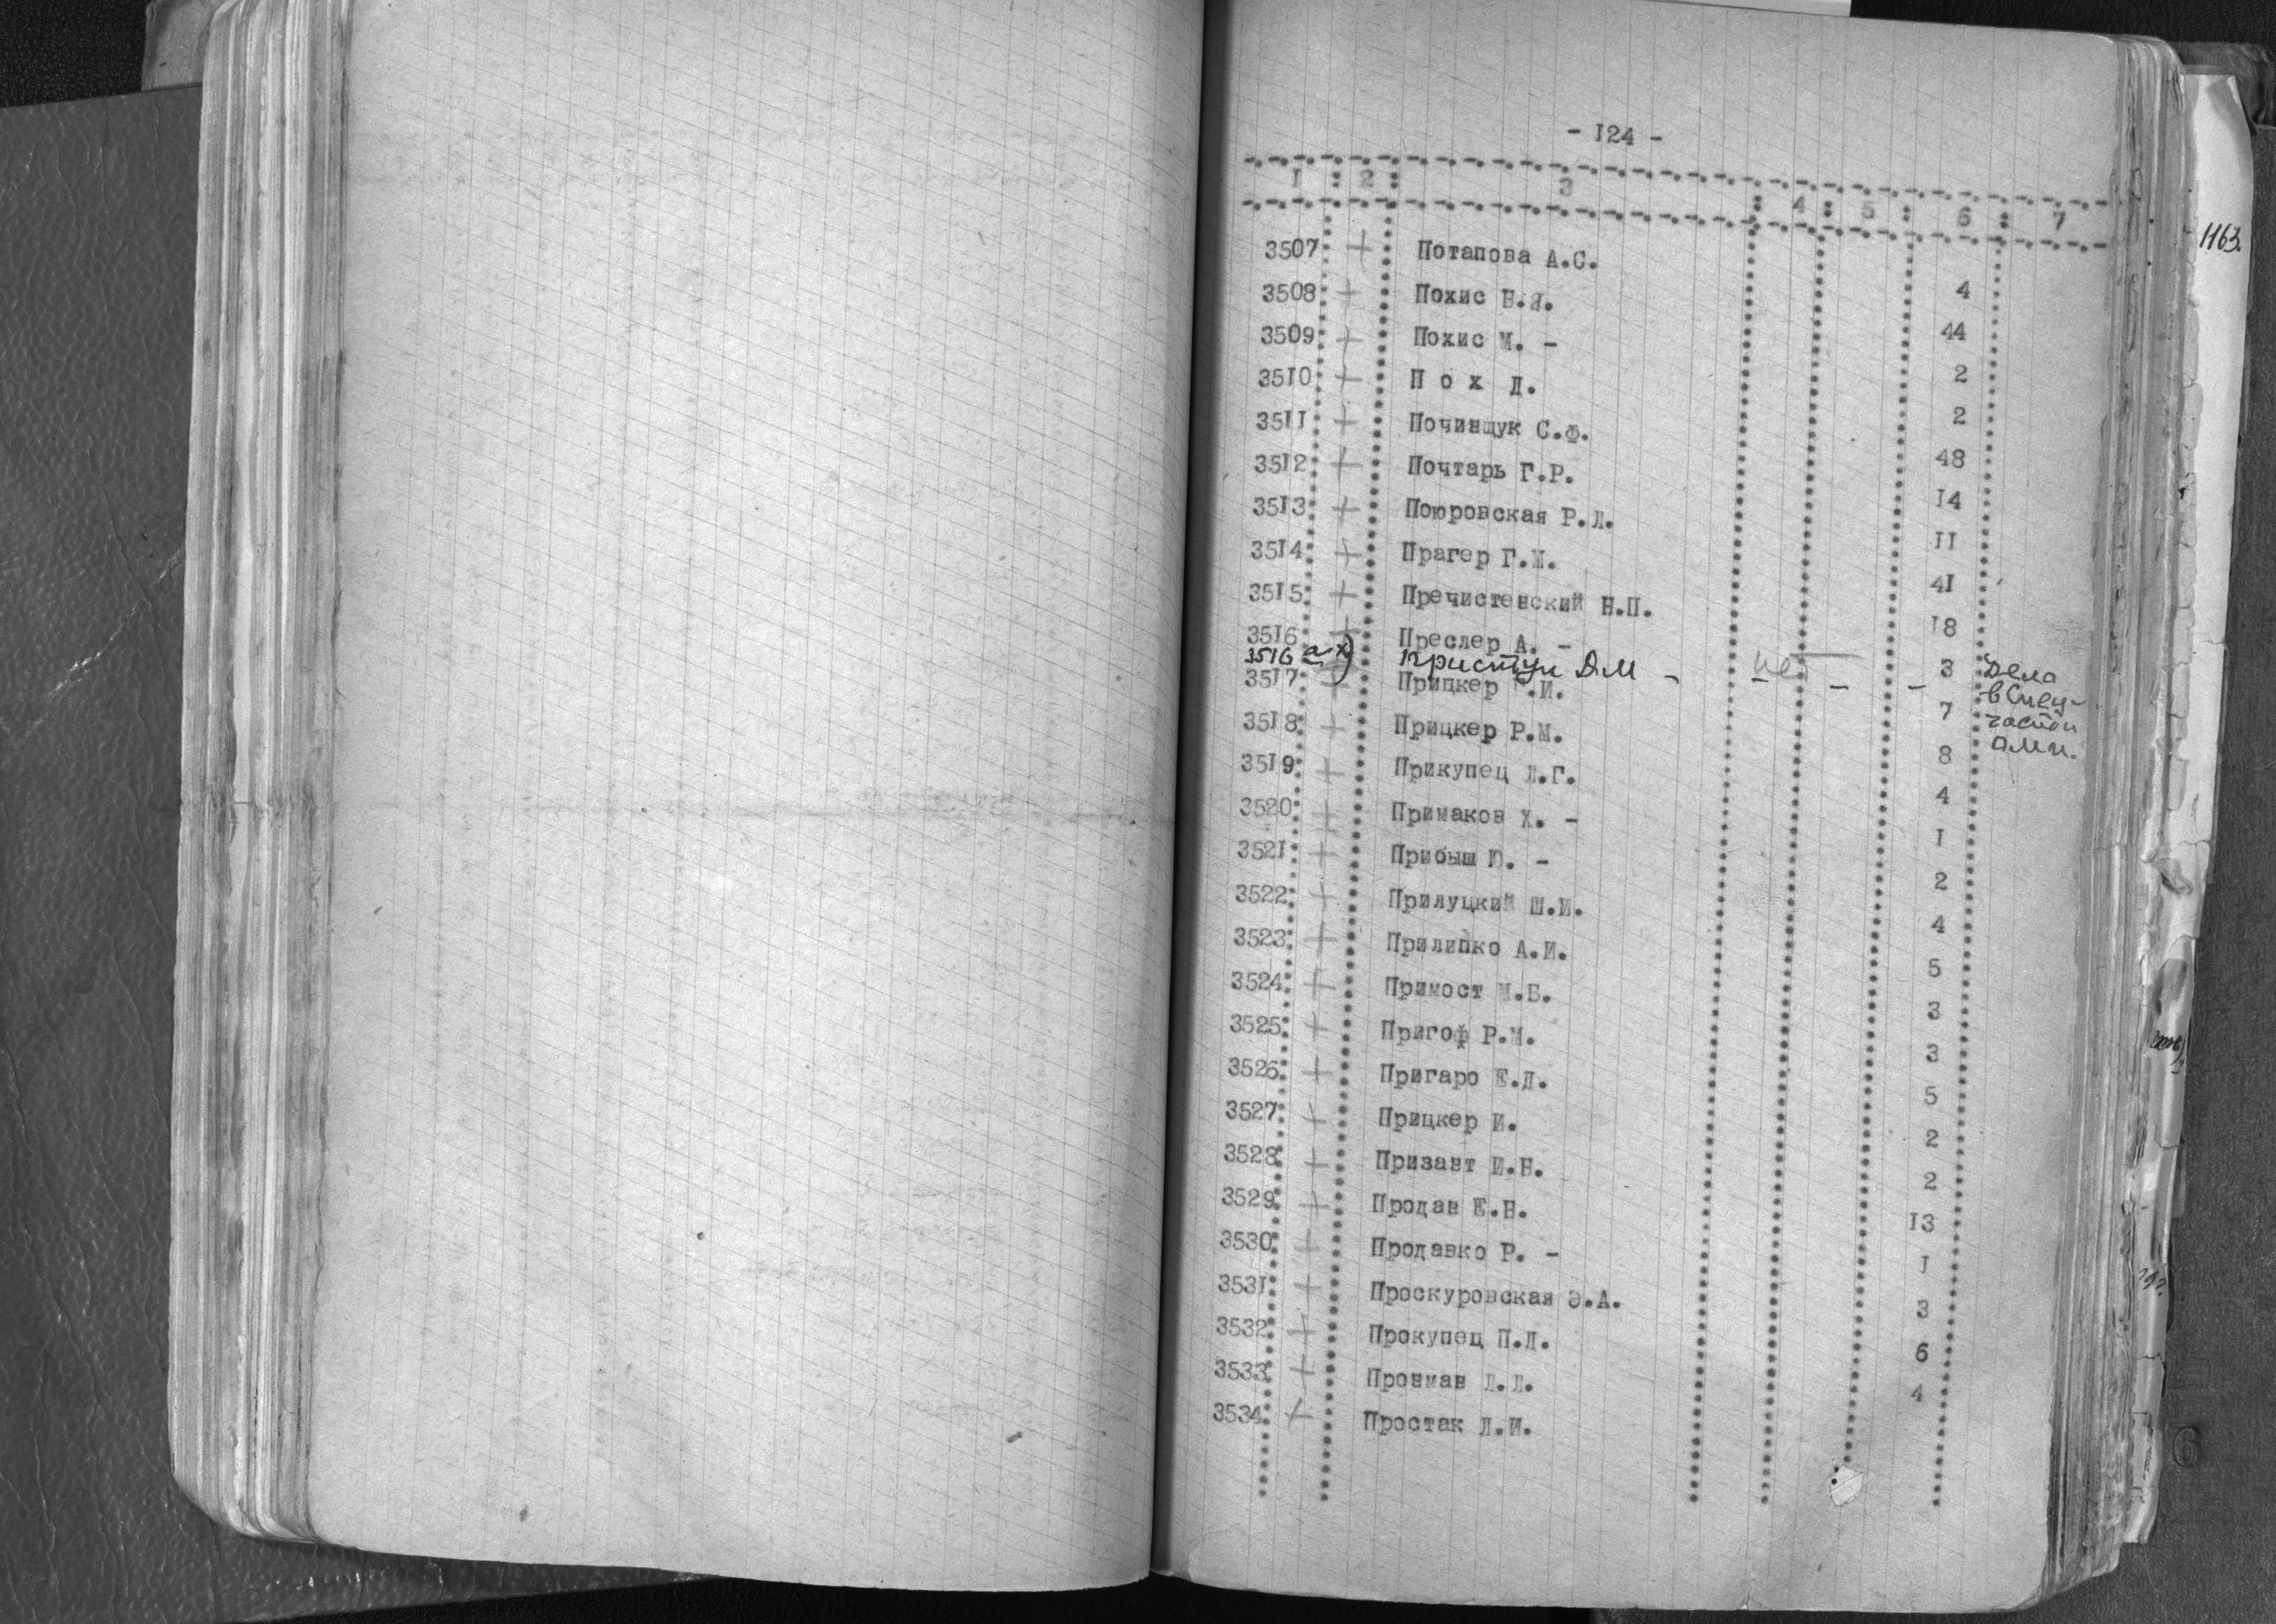 - I24 -
I : 2 : 3 : 4 : 5 : 6 : 7
3507 + Потапова А.С. 4
3508 + Похис Б.Я. 44
3509 + Похис М. - 2
35I0 + П о х Д. 2
35II + Починщук С.Ф. 48
35I2 + Почтарь Г.Р. I4
35I3 + Поюровская Р.Л. II
35I4 + Прагер Г.М. 4I
35I5 + Пречистенский Н.П. I8
35I6 + Преслер А. - 3
3516 а х) Приступ Д.М - нет - - - Дела
в спец-
части
35I7 + Прицкер Г.И. 7
35I8 + Прицкер Р.М. 8
35I9 + Прикупец Л.Г. 4
3520 + Примаков Х. - I
352I + Прибыш Ю. - 2
3522 + Прилуцкий Ш.И. 4
3523 + Прилипко А.И. 5
3524 + Примост М.Б. 3
3525 + Пригоф Р.М. 3
3526 + Пригаро Е.Л. 5
3527 + Прицкер И. 2
3528 + Призант И.Н. 2
3529 + Продан Е.Н. I3
3530 + Продавко Р. - I
353I + Проскуровская Э.А. 3
3532 + Прокупец П.Л. 6
3533 + Провман Л.Л. 4
3534 + Простак Л.И.
1163.